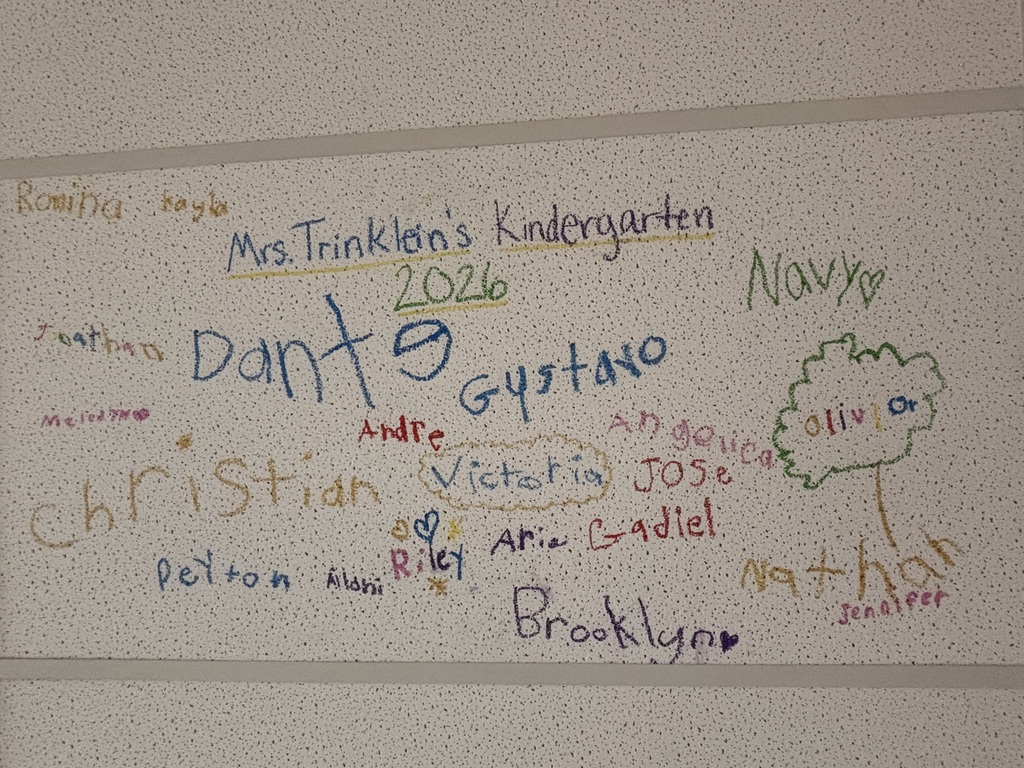 Romina Kayla
Mrs. Trinklein's Kindergarten
2026
Navy
Jonathan
Dante
Gustavo
olivior
Andre
Angelica
Victoria
JOSe
Christian
Riley
Aria
Gadiel
Peyton
Ailani
Nathan
Jennifer
Brooklyn